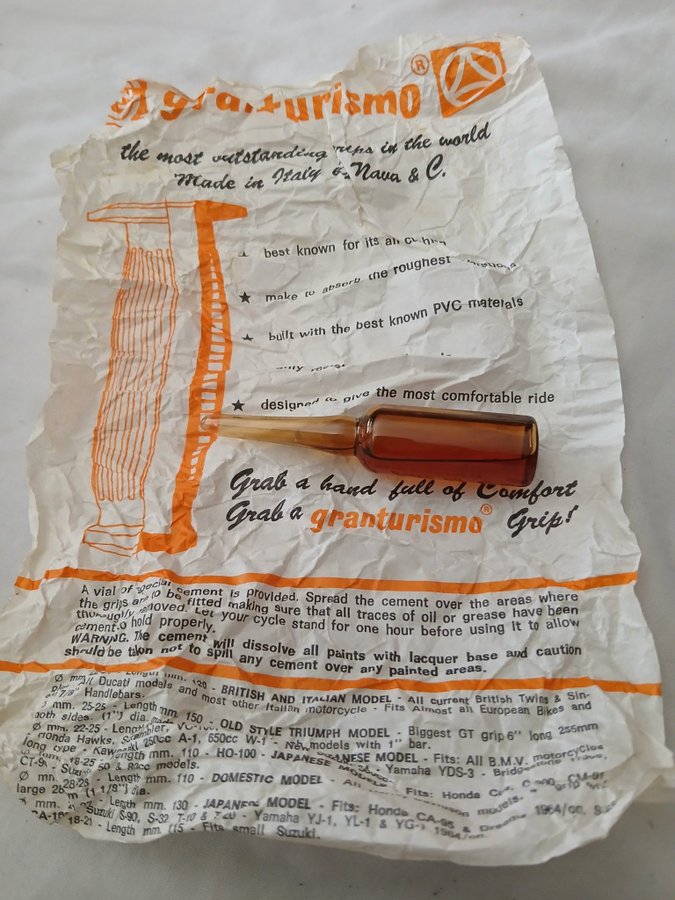 granturismo ®
the most outstanding grips in the world
Made in Italy Nava & C.
best known for its
★ make to absorb the roughest
★ built with the best known PVC materials
★ designed to give the most comfortable ride
Grab a hand full of Comfort
Grab a granturismo® Grip!
A vial of special cement is provided. Spread the cement over the areas where
the grips are to be fitted making sure that all traces of oil or grease have been
thoroughly removed. Let your cycle stand for one hour before using it to allow
cement to hold properly.
WARNING. The cement will dissolve all paints with lacquer base and caution
should be taken not to spill any cement over any painted areas.
Length mm. 120 - BRITISH AND ITALIAN MODEL - All current British Twins & Sin-
Ducati models and most other Italian motorcycle - Fits Almost all European Bikes and
7/8" Handlebars.
mm. 25-25 - Length mm. 150 - OLD STYLE TRIUMPH MODEL - Biggest GT grip 6" long 255mm
both sides. (1") dia.
Ø mm. 22-25 - Length models with 1" bar.
Honda Hawks, Scrambler, 250cc A-1, 650cc W-1
long type - Kawasaki Length mm. 110 - HO-100 - JAPANESE MODEL - Fits: All B.M.V. motorcycles
18-25 50 & 82cc models. - Yamaha YDS-3
Ø mm. 28-28 - Length mm. 110 - DOMESTIC MODEL
large 28 m (1 1/8") dia.
Length mm. 130 - JAPANESE MODEL - Fits: Honda CA-95 & Dream 1964/on.
Suzuki S-90, S-32 - Yamaha YJ-1, YL-1 & YG-1 1964/on.
18-21 - Length mm. 115 - Fits small Suzuki.